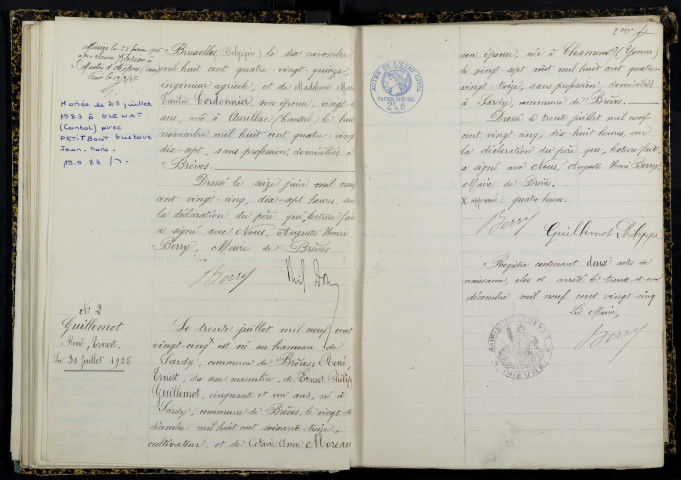 Bruxelles (Belgique) le dix novembre
mil huit cent quatre-vingt-quinze,
ingénieur agricole, et de Madeleine Marie
Cordonnier son épouse, vingt
ans, née à Aurillac (Cantal) le huit
novembre mil huit cent quatre-vingt
dix-sept, sans profession, domiciliés à
Brèves.
Dressé le seize juin mil neuf
cent vingt-cinq, dix-sept heures, sur
la déclaration du père, qui, lecture faite
a signé avec Nous, Auguste Henri
Berry, Maire de Brèves
Berry
Mariée le 25 juillet
1983 à
(Cantal) avec
PETITBOUT Gustave
Jean-Marie.
N° 2
Guillemot
René, Ernest.
Le 30 juillet 1925
Le trente juillet mil neuf cent
vingt-cinq X est né au hameau de
Sardy, commune de Brèves, René,
Ernest, du sexe masculin, de Ernest Philippe
Guillemot, cinquante et un ans, né à
Sardy, commune de Brèves, le vingt
décembre mil huit cent soixante-treize,
cultivateur, et de Octavie Anna Moreau
son épouse, née à (Yonne)
le vingt sept août mil huit cent quatre
vingt-treize, sans profession, domiciliés
à Sardy, commune de Brèves.
Dressé le trente juillet mil neuf
cent vingt-cinq, dix-huit heures, sur
la déclaration du père qui, lecture faite
a signé avec Nous, Auguste Henri Berry
Maire de Brèves.
X approuvé : quatre heures.
Berry
Guillemot Philippe
Registre contenant deux actes de
naissance, clos et arrêté le trente et un
décembre mil neuf cent vingt-cinq
Le Maire,
Berry
ACTES DE L'ÉTAT-CIVIL
PAPIER SPÉCIAL
NIÈVRE